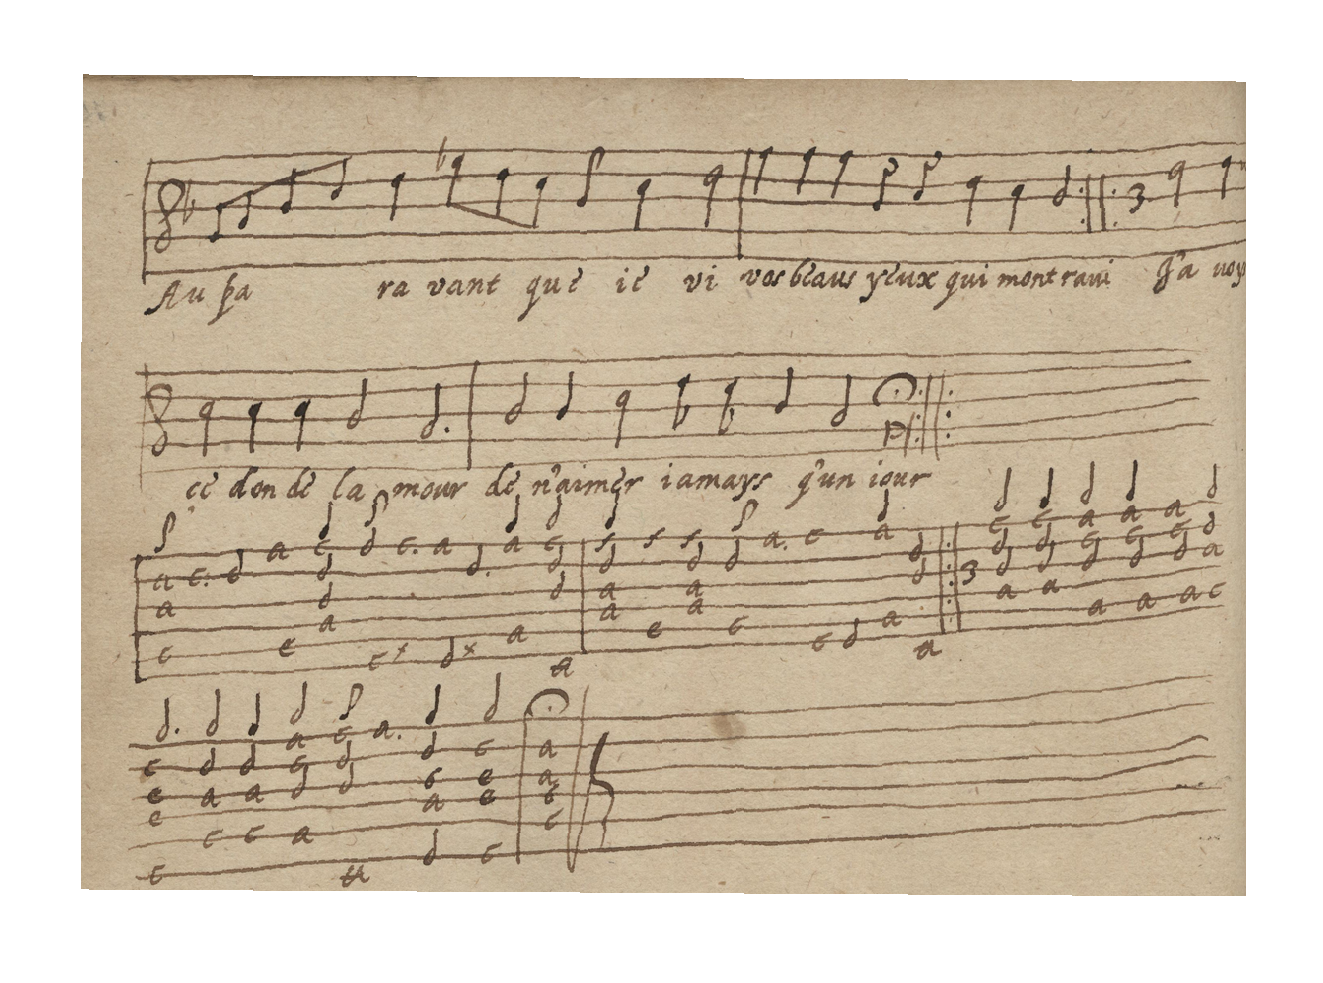 Au pa ra vant que ie vi vos beaus yeux qui mont ravi Q'a voy
ce don de la mour de n'aimer iamays q'un iour